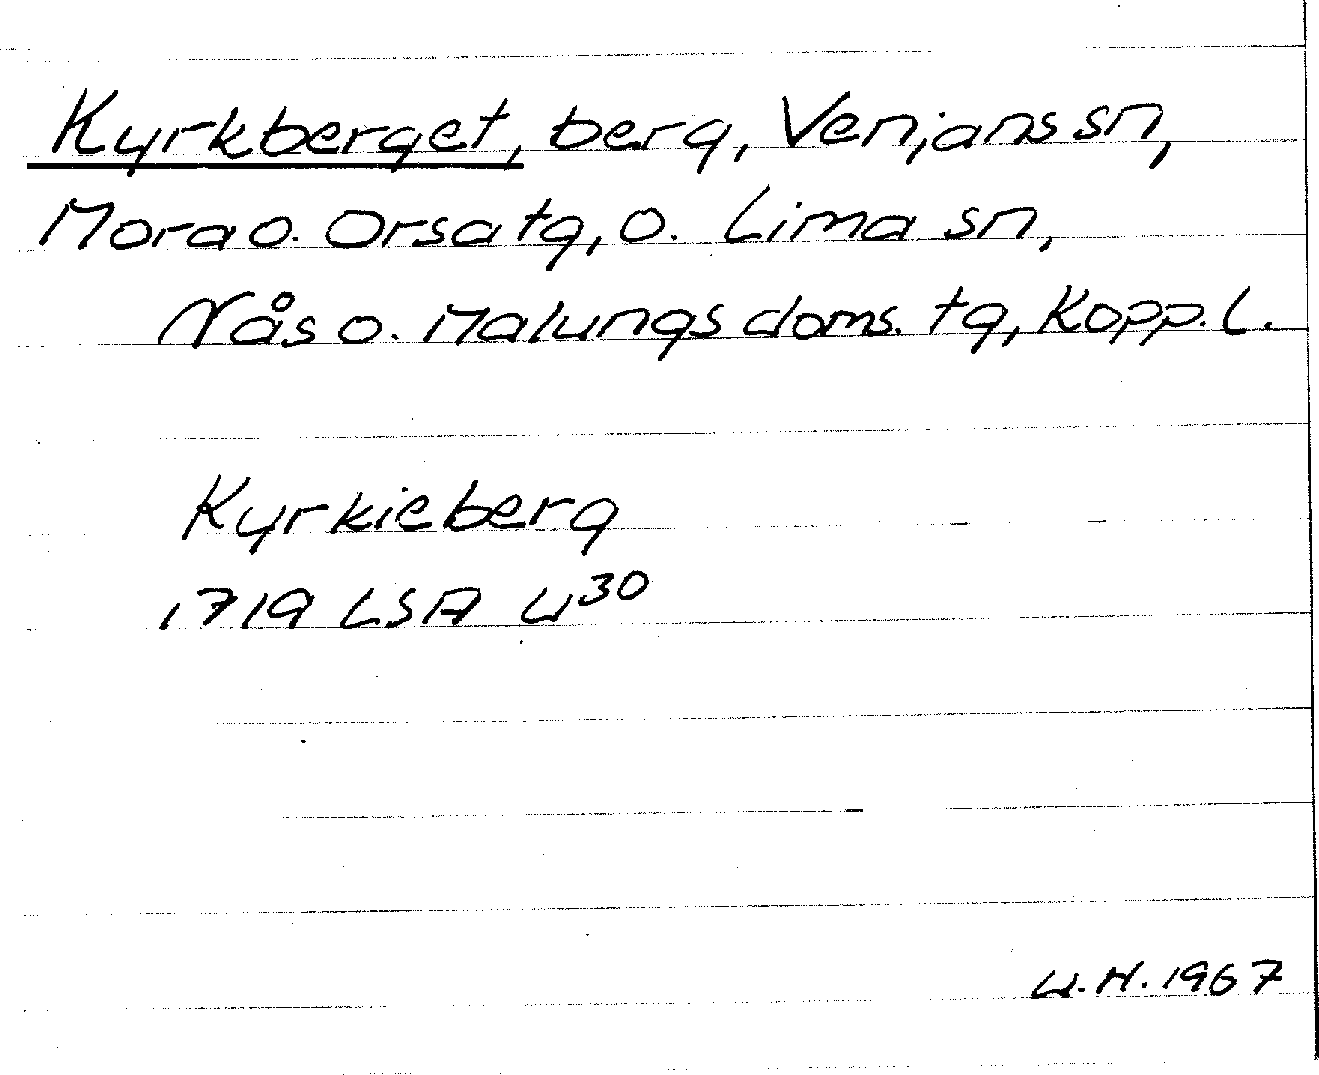 Kyrkberget, berg, Venjans sn,
Mora o. Orsa tg, o. Lima sn,
Nås o. Malungs doms. tg, Kopp. l.
Kyrkieberg
1719 LSA U³⁰
U.H. 1967